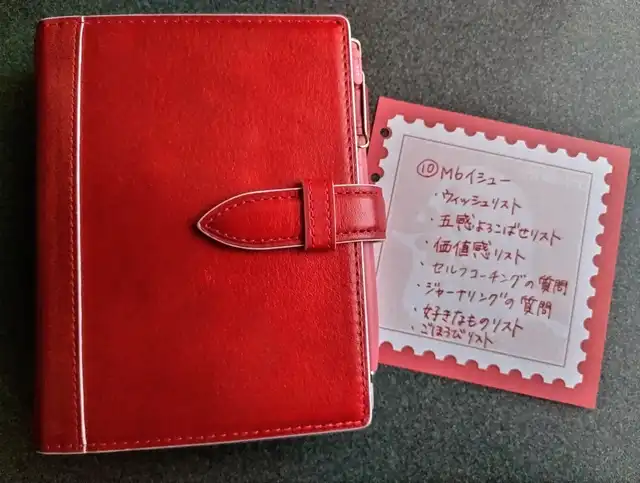 ⑩M6イシュー
・ウィッシュリスト
・五感よろこばせリスト
・価値感リスト
・セルフコーチングの質問
・ジャーナリングの質問
・好きなものリスト
・ごほうびリスト